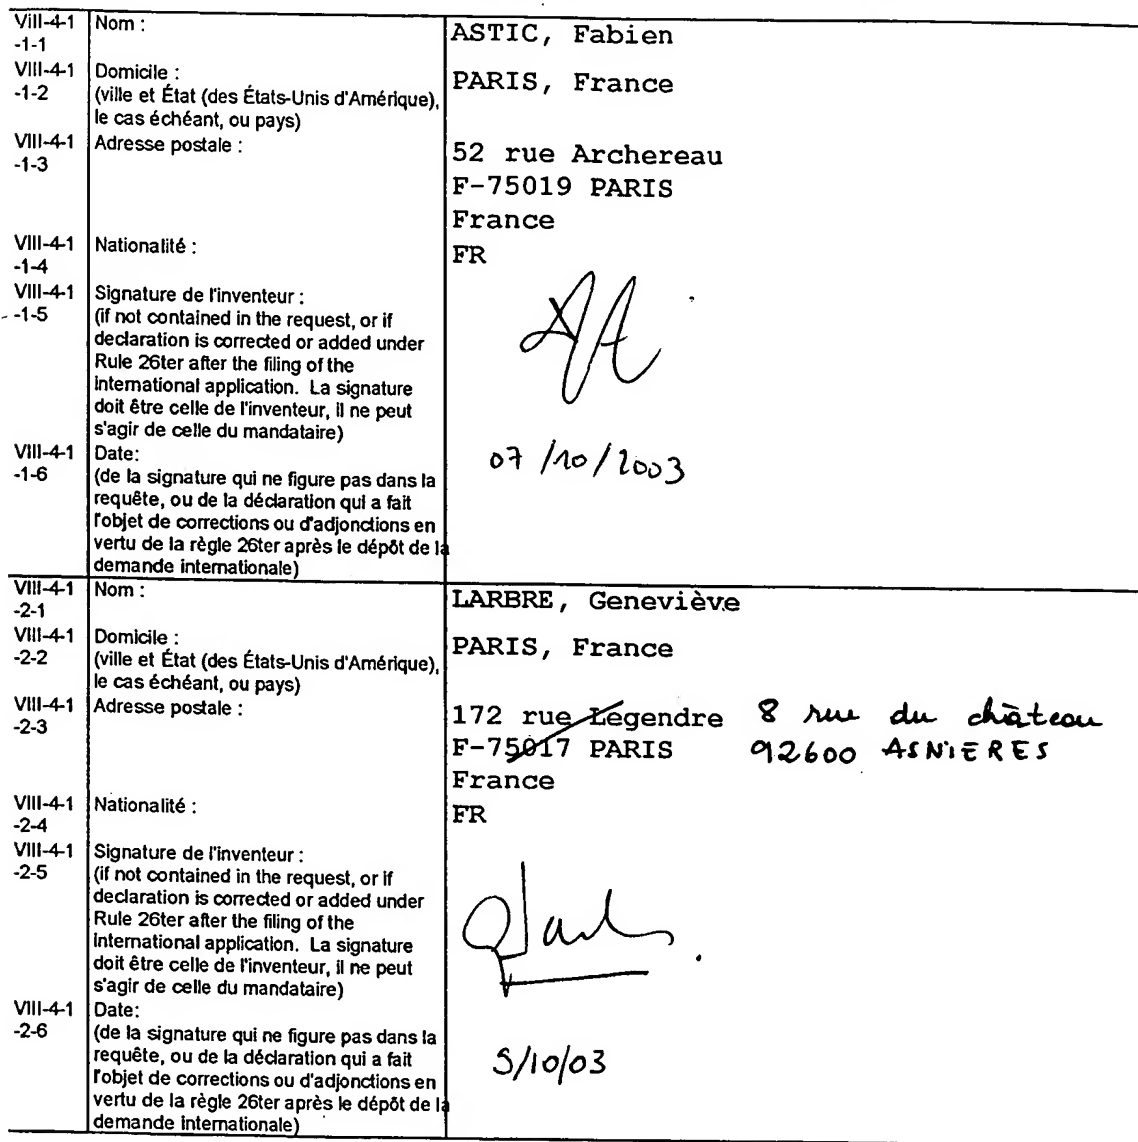 VIII-4-1 Nom : ASTIC, Fabien
-1-1
VIII-4-1 Domicile : PARIS, France
-1-2 (ville et État (des États-Unis d'Amérique),
le cas échéant, ou pays)
VIII-4-1 Adresse postale : 52 rue Archereau
-1-3 F-75019 PARIS
France
VIII-4-1 Nationalité : FR
-1-4
VIII-4-1 Signature de l'inventeur :
-1-5 (if not contained in the request, or if
declaration is corrected or added under
Rule 26ter after the filing of the
international application. La signature
doit être celle de l'inventeur, il ne peut
s'agir de celle du mandataire)
VIII-4-1 Date: 07/10/2003
-1-6 (de la signature qui ne figure pas dans la
requête, ou de la déclaration qui a fait
l'objet de corrections ou d'adjonctions en
vertu de la règle 26ter après le dépôt de la
demande internationale)
VIII-4-1 Nom : LARBRE, Geneviève
-2-1
VIII-4-1 Domicile : PARIS, France
-2-2 (ville et État (des États-Unis d'Amérique),
le cas échéant, ou pays)
VIII-4-1 Adresse postale : 172 rue Legendre 8 rue du château
-2-3 F-75017 PARIS 92600 ASNIERES
France
VIII-4-1 Nationalité : FR
-2-4
VIII-4-1 Signature de l'inventeur :
-2-5 (if not contained in the request, or if
declaration is corrected or added under
Rule 26ter after the filing of the
international application. La signature
doit être celle de l'inventeur, il ne peut
s'agir de celle du mandataire)
VIII-4-1 Date: 5/10/03
-2-6 (de la signature qui ne figure pas dans la
requête, ou de la déclaration qui a fait
l'objet de corrections ou d'adjonctions en
vertu de la règle 26ter après le dépôt de la
demande internationale)